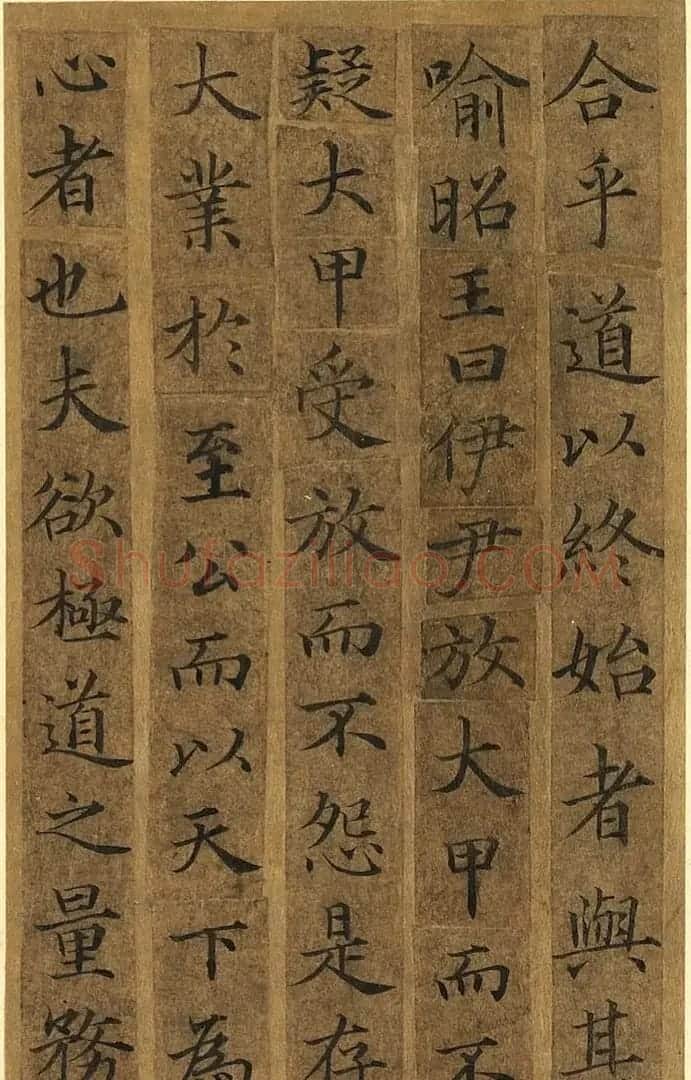 合乎道以終始者與其
喻昭王曰伊尹放大甲而不
疑大甲受放而不怨是存
大業於至公而以天下為
心者也夫欲極道之量務
Shufaziliao.COM